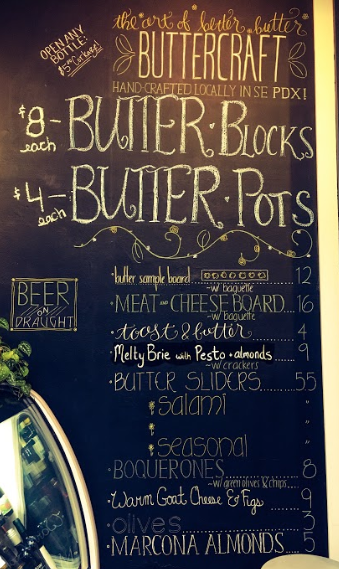 the art of better butter
OPEN ANY
BOTTLE:
$5 Corkage!
BUTTERCRAFT
HAND-CRAFTED LOCALLY IN SE PDX!
$8 each - BUTTER · BLOCKS
$4 each - BUTTER · POTS
· butter sample board 12
~w/ baguette
· MEAT AND CHEESE BOARD.... 16
~w/ baguette
· toast & butter 4
· Melty Brie with Pesto + almonds 9
~w/ crackers
BEER
ON
DRAUGHT!
· BUTTER SLIDERS........ 55
* salami "
* seasonal "
· BOQUERONES 8
~w/ green olives & chips
· Warm Goat Cheese & Figs 9
· olives 3
· MARCONA ALMONDS 5